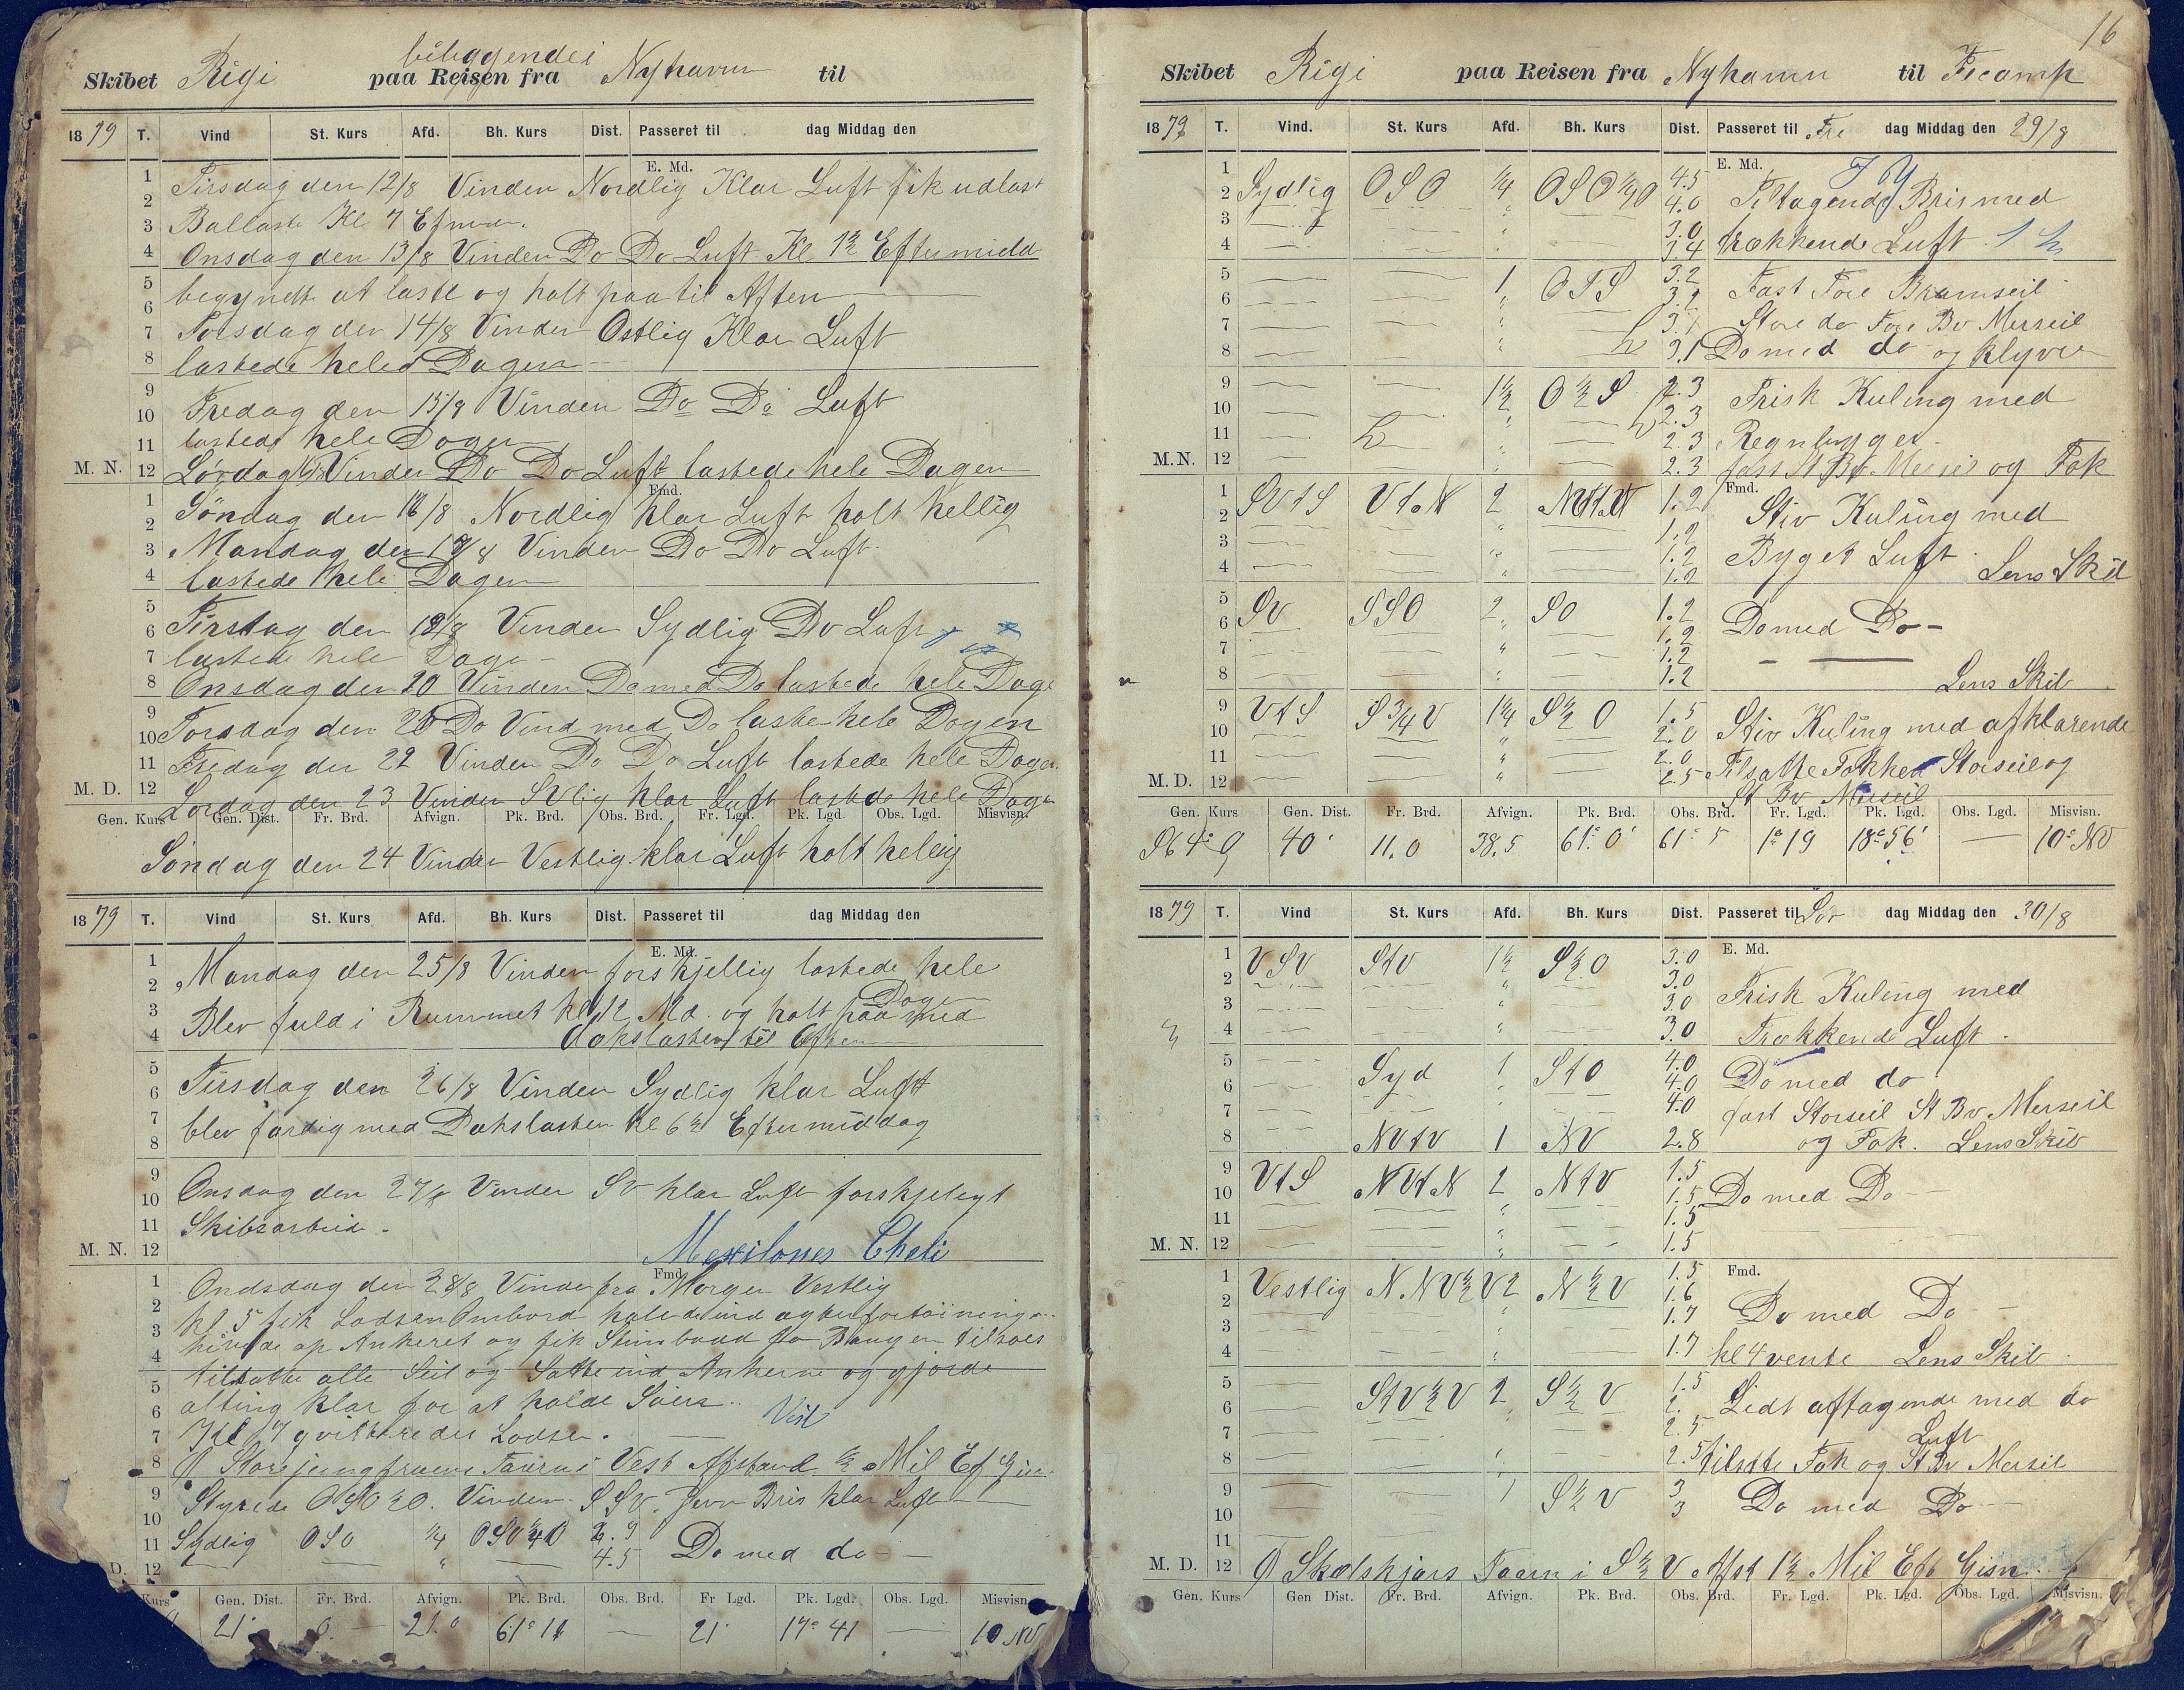 Skibet Rigi beliggendei paa Reisen fra Nyhavn til
1879 T. Vind St. Kurs Afd. Bh. Kurs Dist. Passeret til dag Middag den
E. Md.
Tirsdag den 12/8 Vinden Nordlig Klar Luft fik udlast
Ballast Kl 7 Efmid.
Onsdag den 13/8 Vinden Do Do Luft Kl 1½ Eftermidd
begyndt at laste og holt paa til Aften
Torsdag den 14/8 Vinden Ostlig Klar Luft
lastede hele Dagen
Fredag den 15/8 Vinden Do Do Luft
lastede hele Dagen
M. N. 12 Lørdag Vinden Do Do Luft lastede hele Dagen
Fmd.
Søndag den /8 Nordlig klar Luft holt hellig
Mandag den /8 Vinden Do Do Luft
lastede hele Dagen
Tirsdag den /8 Vinden Sydlig Do Luft
lastede hele Dage
Onsdag den 20 Vinden Do med Do lastede hele Dage
Torsdag den Do Vind med Do laste hele Dagen
Fredag den 22 Vinden Do Do Luft lastede hele Dagen
M. D. 12 Lørdag den 23 Vinden SVlig klar Luft lastede hele Dage
Gen. Kurs Gen. Dist. Fr. Brd. Afvign. Pk. Brd. Obs. Brd. Fr. Lgd. Pk. Lgd. Obs. Lgd. Misvisn.
Søndag den 24 Vinden Vestlig klar Luft holt helig
1879 T. Vind St. Kurs Afd. Bh. Kurs Dist. Passeret til dag Middag den
E. Md.
Mandag den 25/8 Vinden forskjellig lastede hele
Dage
Blev fuld i Rummet kl 12 Md. og holt paa med
Dækslasten til Aften
Tirsdag den 26/8 Vinden Sydlig klar Luft
blev færdig med Dækslasten Kl 6½ Eftermiddag
Onsdag den 27/8 Vinden SV klar Luft forskjeligt
Skibsarbeid.
M. N. 12 Mexilones Cheli
Fmd.
Ondsdag den 28/8 Vinden fra Morgen Vestlig
kl. 5 fik Lodsen Ombord halede ind agterfortøininge
hivede op Ankeret og fik Stimbaad til at Bauger tilsøes
tilsatte alle Seil og Satte ind Ankerne og gjorde
alting klar for at holde Søers.
Kl 7 qvitterede Lodsen. Vest
Storejungfruens Taarn i Vest Afstand ½ Mil Ef Gisn.
Styrede OSO½O. Vinden SSV. Jevn Bris klar Luft
Sydlig OSO ¼ OSO¼O 6.9
4.5 Do med do
Kurs Gen. Dist. Fr. Brd. Afvign. Pk. Brd. Obs. Brd. Fr Lgd. Pk. Lgd. Obs. Lgd. Misvisn
21 0 21.0 61° 11 — 21' 17° 41 — 10 NV
16
Skibet Rigi paa Reisen fra Nyhamn til Fecamp
1879 T. Vind. St. Kurs Afd. Bh. Kurs Dist. Passeret til Fre dag Middag den 29/8
E. Md.
Sydlig OSO ¼ OSO¼O 4.5
4.0 Tiltagende Bris med
3.0
3.4 trækkende Luft
1 OTS 3.2 Fast Fore Bramseil
Store do Fore Bv Merseil
3.1 Do med do og Klyver
1½ O½S 2.3 Frisk Kuling med
2.3
2.3 Regnbyger
M.N. 12 2.3 fast St Bv. Merseil og Fok
Fmd.
SVtS VtN 2 NVtN 1.2 Stiv Kuling med
1.2
1.2 Byget Luft
1.2 Lens Skib
SV SSO 2 SO 1.2 Do med Do
1.2
1.2
1.2 Lens Skib
VtS S¾V 1¼ S½O 1.5 Stiv Kuling med afklarende
2.0
2.0 Tilsatte Fokken Storseil og
M. D. 12 2.5 St Bv Merseil
Gen. Kurs Gen. Dist. Fr. Brd. Afvign. Pk. Brd. Obs. Brd. Fr. Lgd. Pk. Lgd. Obs. Lgd. Misvisn.
S64°O 40' 11.0 38.5 61° 0' 61° 5 1° 19 18° 56' — 10° NV
1879 T. Vind St. Kurs Afd. Bh. Kurs Dist. Passeret til Lør dag Middag den 30/8
E. Md.
VSV StV 1½ S½O 3.0
3.0 Frisk Kuling med
3.0
3.0 Trækkende Luft.
Syd 1 StO 4.0 Do med do
4.0
4.0 fast Storseil St Bv Merseil
NVtV 1 NV 2.8 og Fok. Lens Skib
VtS NVtN 2 NtV 1.5
1.5 Do med Do
1.5
M. N. 12 1.5
Fmd.
Vestlig N.NV½V 2 N½V 1.5
1.6 Do med Do
1.7
1.7 kl 4 vente Lens Skib
StV½V 2 S½V 1.5 Lidt aftagende med do
2.
2.5 Luft
2.5 tilsatte Fok og St Bv Merseil
1 S½V 3
3 Do med Do
M. D. 12 Skælskjærs Taarn i S½V Afst 1½ Mil Eft Gisn.
Gen. Kurs Gen Dist. Fr. Brd. Afvign. Pk. Brd. Obs. Brd. Fr. Lgd. Pk. Lgd. Obs. Lgd. Misvisn.